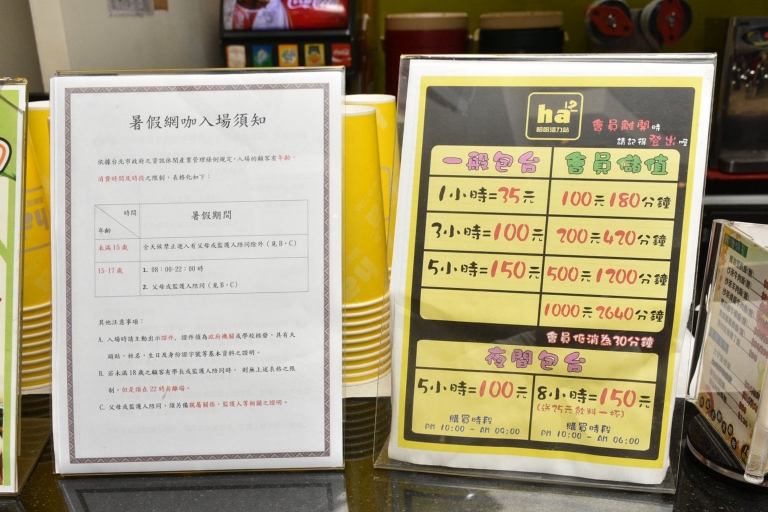 暑假網咖入場須知
依據台北市政府之資訊休閒產業管理條例規定,入場的顧客有年齡、
消費時間及時段之限制,表格化如下:
時間
年齡
暑假期間
未滿 15 歲
全天候禁止進入有父母或監護人陪同除外(見B、C)
15-17 歲
1. 08:00-22:00 時
2. 父母或監護人陪同(見B、C)
其他注意事項:
A. 入場時請主動出示證件,證件須為政府機關或學校核發,具有大
頭貼、姓名、生日及身份證字號等基本資料之證明。
B. 若未滿 18 歲之顧客有學長或監護人陪同時,則無上述表格之限
制,但是須在22時前離場。
C. 父母或監護人陪同,請另備親屬關係、監護人等相關之證明。
ha
哈哈活力站
會員離開時
請記得登出喔
一般包台
會員儲值
1小時=35元
100元180分鐘
3小時=100元
200元420分鐘
5小時=150元
500元1200分鐘
1000元2640分鐘
會員低消為30分鐘
夜間包台
5小時=100元
8小時=150元
(送25元飲料一杯)
購買時段
PM 10:00 - AM 09:00
購買時段
PM 10:00 - AM 06:00